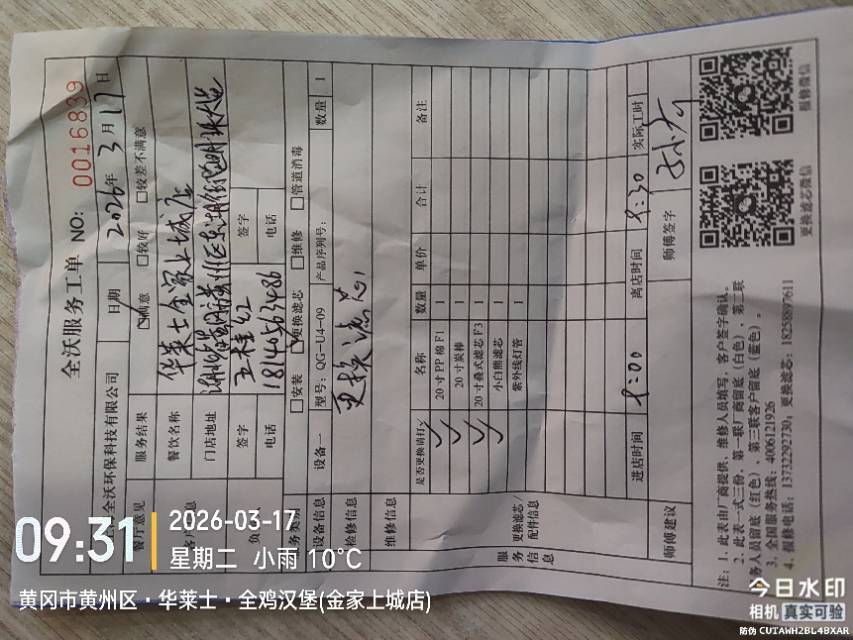 全沃服务工单 NO: 0016839
全沃环保科技有限公司 日期 2026年3月17日
餐厅意见 服务结果 ☑满意 □较好 □较差不满意
餐饮名称 华莱士金家上城店
门店地址
签字 王桂红 签字
电话 18140563486 电话
服务类别 □安装 ☑更换滤芯 □维修 □管道消毒
设备信息 设备一 型号: QG-U4-09 产品序列号: 数量 1
检修信息 更换滤芯
维修信息
服务信息 更换滤芯/配件信息 是否更换请打✓ 名称 数量 单价 合计 备注
✓ 20寸PP棉F1 1
✓ 20寸炭棒 1
✓ 20寸叠式滤芯F3 1
✓ 小白熊滤芯 1
紫外线灯管 1
进店时间 9:00 离店时间 9:30 实际工时
师傅建议 师傅签字
注: 1、此表由厂商提供,维修人员填写,客户签字确认。
2、此表一式三份,第一联厂商留底(白色),第二联
务人员留底(红色),第三联客户留底(蓝色)。
3、全国服务热线: 4006121926
4、报修电话: 13732292730; 更换滤芯: 18258897611
更换滤芯微信 报修微信
09:31
2026-03-17
星期二 小雨 10°C
黄冈市黄州区·华莱士·全鸡汉堡(金家上城店)
今日水印
相机 真实可验
防伪 CUTAWH2BL4BXAR